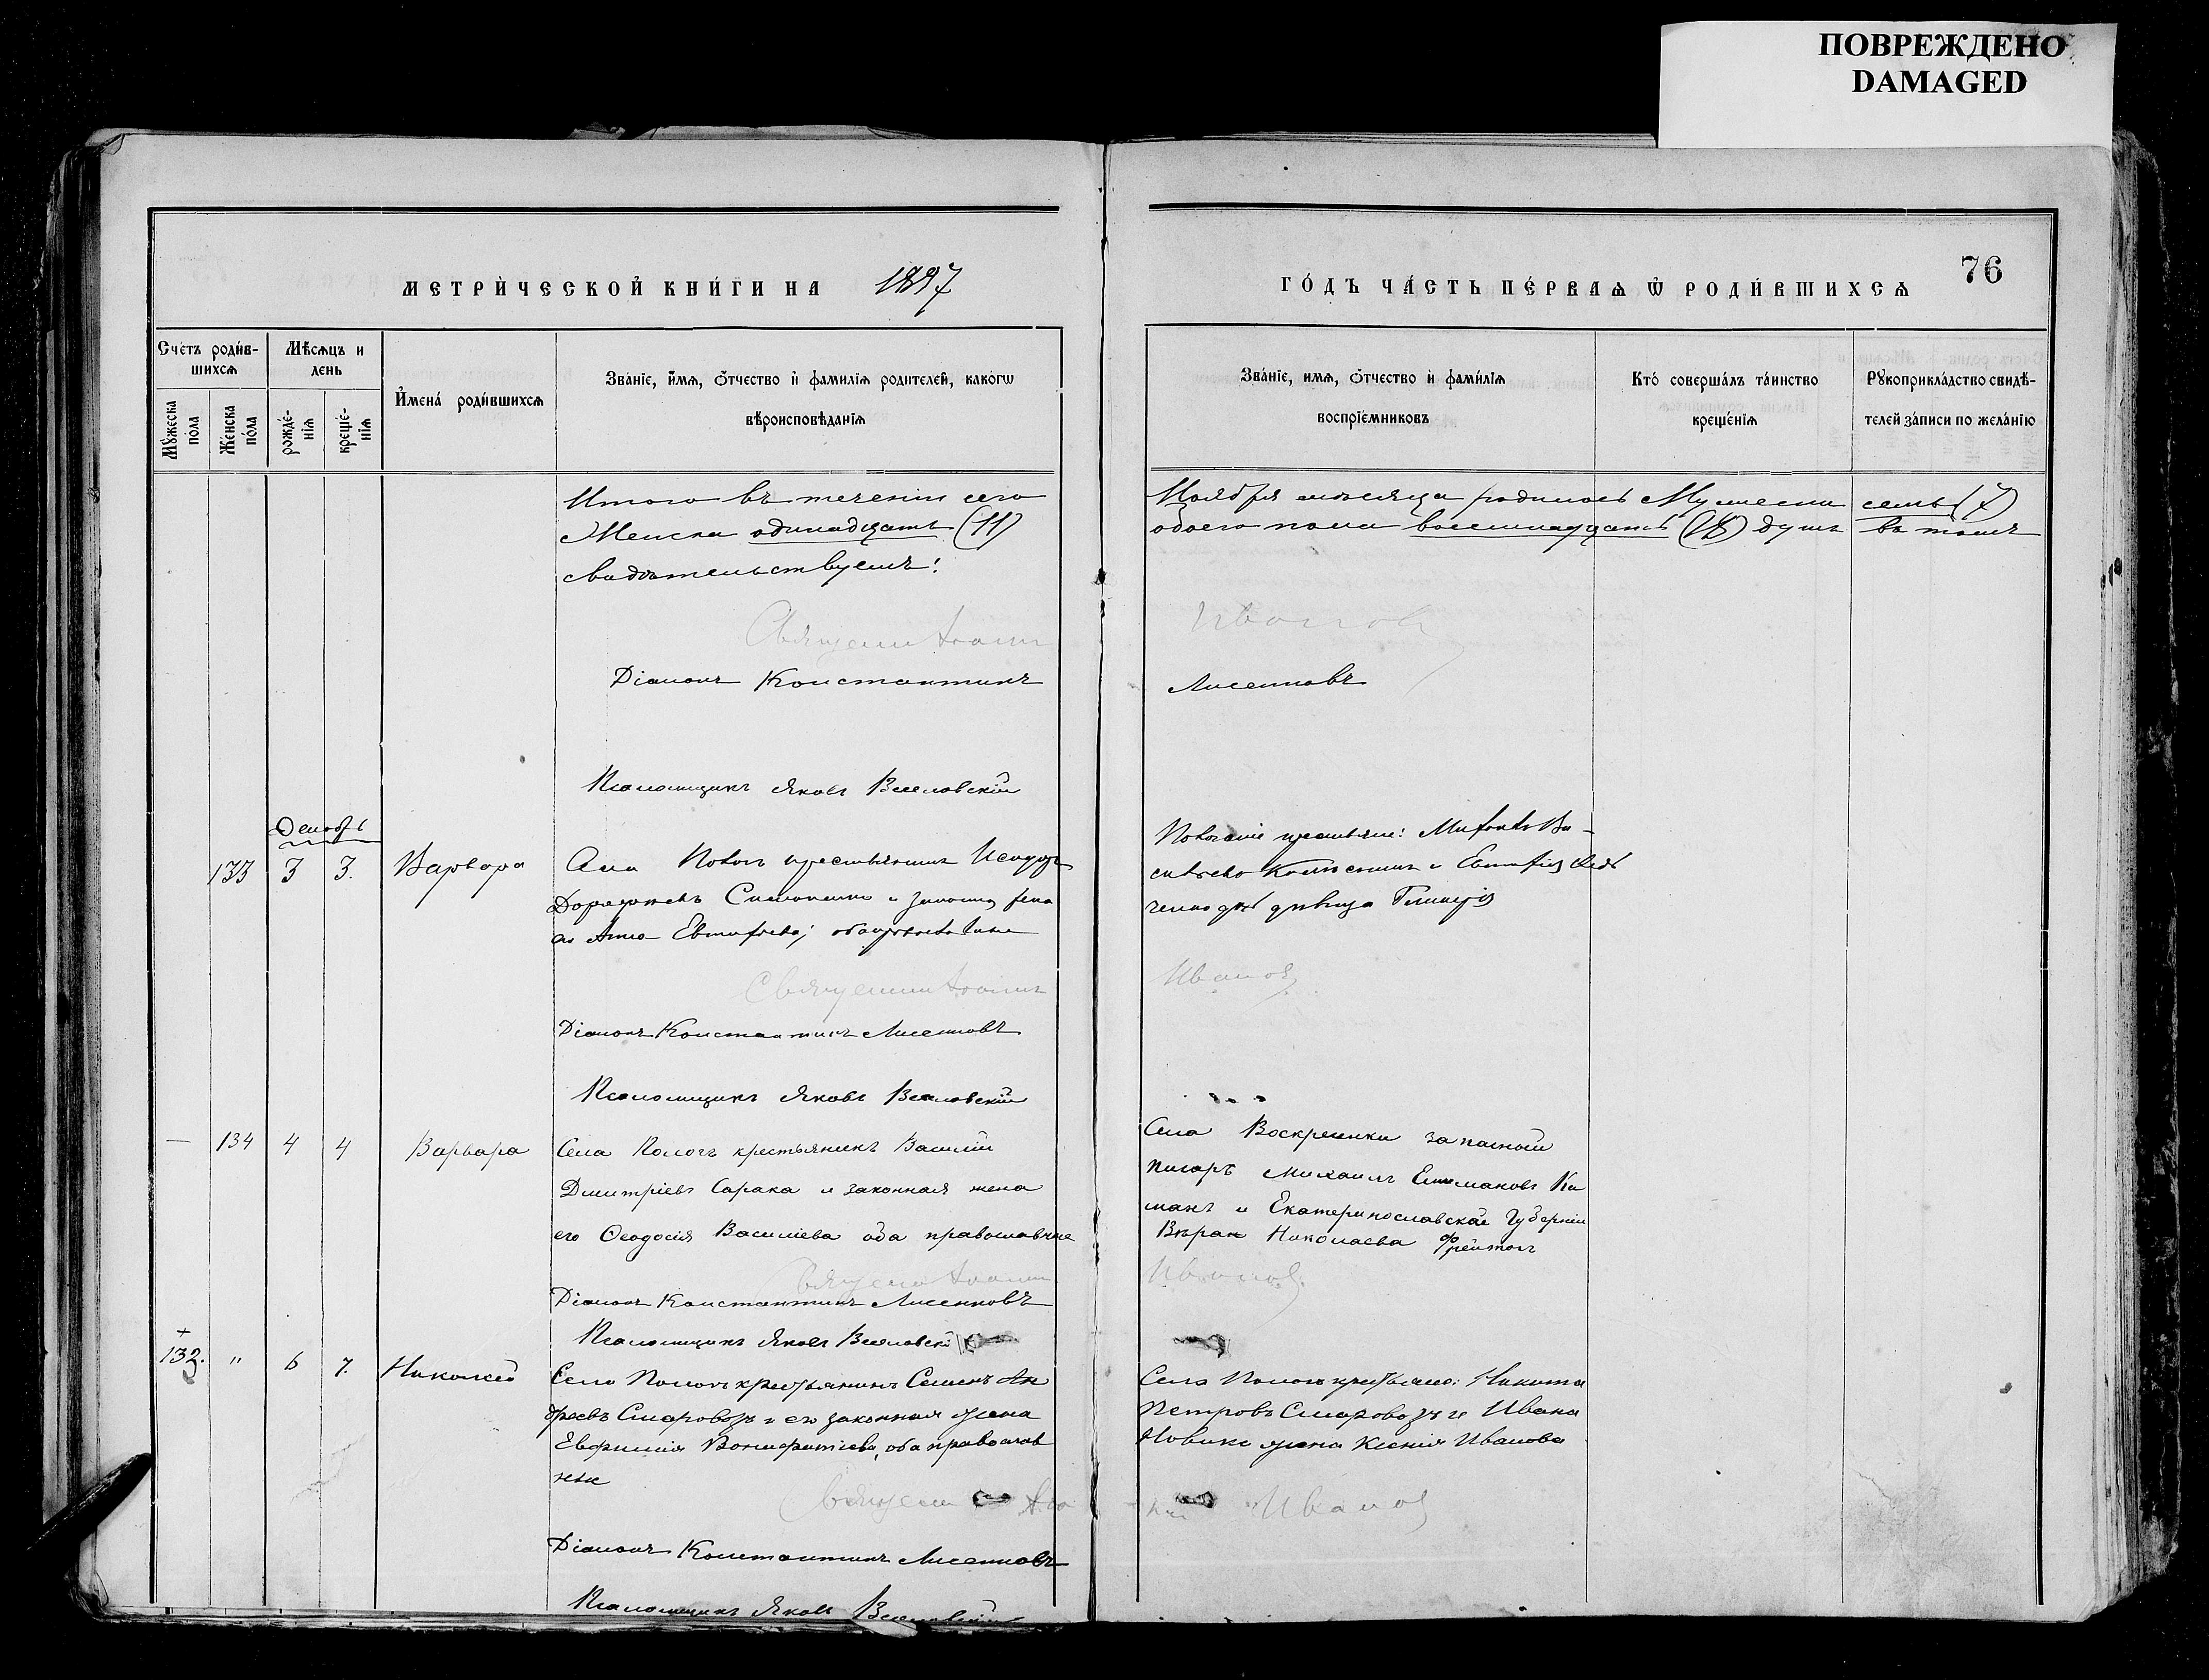 ПОВРЕЖДЕНО
DAMAGED
МЕТРИ́ЧЕСКОЙ КНИ́ГИ НА 1897
ГО́ДЪ ЧА́СТЬ ПЕ́РВАѦ Ѡ҆ РОДИ́ВШИХСѦ
76
Сче́тъ роди́в-
шихсѧ
Мѣ́сѧцъ и
день
Мꙋ́жеска
по́ла
Же́нска
по́ла
рожде́-
нїѧ
креще́-
нїѧ
И҆мена́ роди́вшихсѧ
Зва́нїе, и҆́мѧ, ѻ҆́тчество и҆ фами́лїѧ роди́телей, како́гѡ
вѣроисповѣ́данїѧ
Зва́нїе, имѧ, ѻ҆́тчество и҆ фами́лїѧ
воспрїе́мниковъ
Кто́ соверша́лъ та́инство
креще́нїѧ
Рꙋкоприкла́дство свидѣ́-
телей за́писи по жела́нїю
Итого въ теченіи сего
Ноября мѣсяца родилось Мужески семь (7)
Женска одинадцать (11)
обоего пола восемнадцать (18) душъ въ томъ
свидѣтельствуемъ:
Священникъ Іоаннъ
Ивановъ
Діаконъ Константинъ
Лисенковъ
Псаломщикъ Яковъ Веселовскій
Декабрь
133 3 3. Варвара
Села Пологъ крестьянинъ
Симоненко и законная жена
его Анна
Священникъ Іоаннъ
Иванов
Діаконъ Константинъ Лисенковъ
Псаломщикъ Яковъ Веселовскій
— 134 4 4 Варвара
Села Пологъ крестьянинъ Василій
Дмитріевъ Сарака и законная жена
его Ѳеодосія Васильева оба православные
Села Воскресенки запасной
писарь Михаилъ
и Екатеринославской Губерніи
Николаева
Священ Іоанн
Иванов.
Діаконъ Константинъ Лисенковъ
Псаломщикъ Яковъ Веселовскій
132. " 6 7. Николай
Села Пологъ крестьянинъ Семенъ Ан
дреевъ Смаровозъ и его законная жена
Евфимія Вонифатіева, оба православ
ные
Села Пологъ крестьяне: Никита
Петровъ Смаровозъ и Ивана
Новика жена Ксенія Иванова
Священ
Иванов
Діаконъ Константинъ Лисенковъ
Псаломщикъ Яковъ Веселовскій